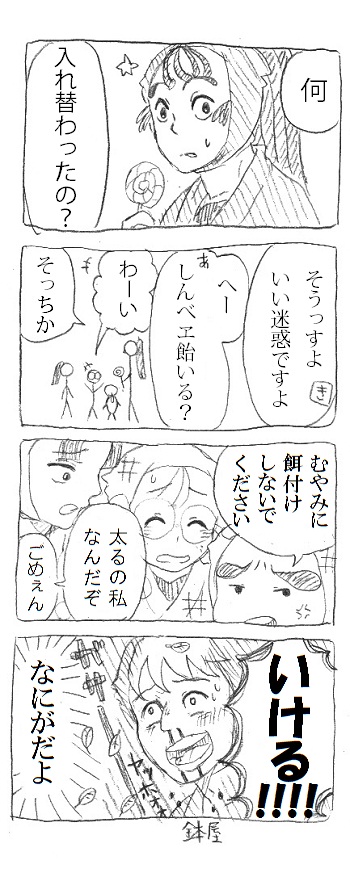 何
入れ替わったの？
そうっすよ
いい迷惑ですよ
き
へー
あ
しんベヱ飴いる？
わーい
そっちか
むやみに
餌付け
しないで
ください
太るの私
なんだぞ
ごめぇん
いける!!!!
ガサ
ヤッホオ
なにがだよ
鉢屋